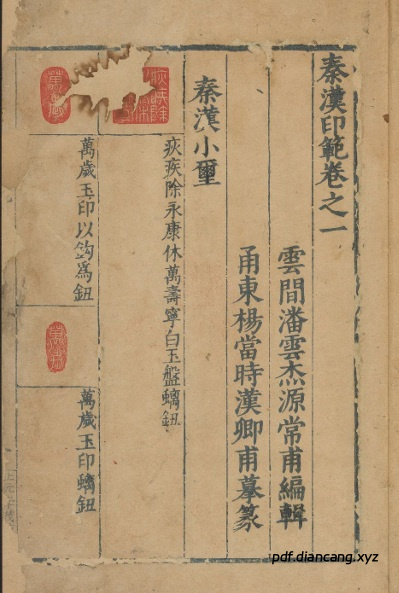 秦漢印範卷之一
雲間潘雲杰源常甫編輯
甬東楊當時漢卿甫摹篆
秦漢小璽
疢疾除永康休萬壽寧白玉盤螭鈕
萬歲玉印以鈎爲鈕
萬歲玉印螭鈕
pdf.diancang.xyz